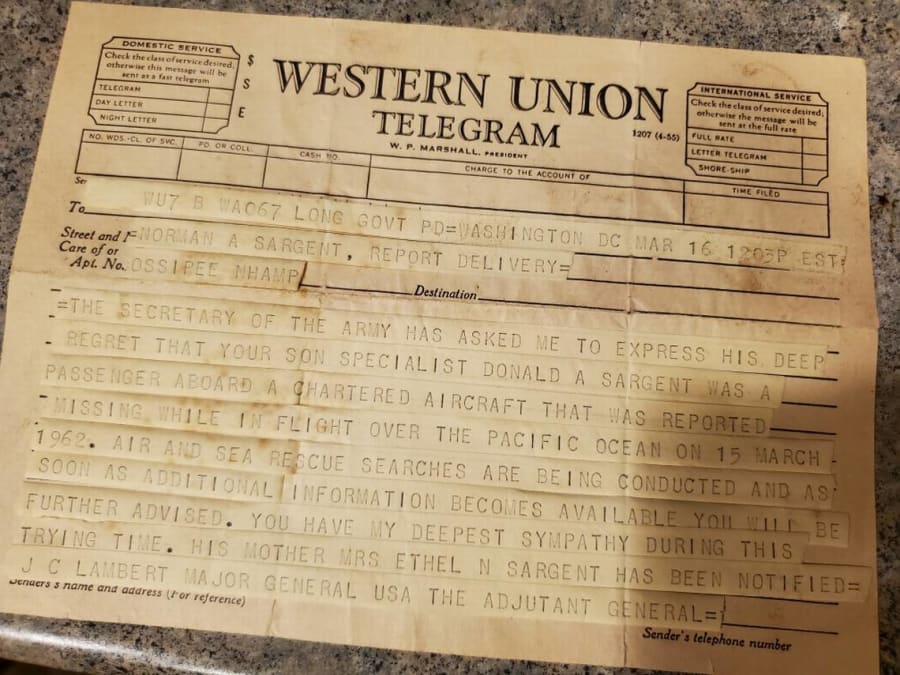 DOMESTIC SERVICE
Check the class of service desired;
otherwise this message will be
sent as a fast telegram
TELEGRAM
DAY LETTER
NIGHT LETTER
$
S
E
WESTERN UNION
TELEGRAM
W. P. MARSHALL, PRESIDENT
1207 (4-55)
INTERNATIONAL SERVICE
Check the class of service desired;
otherwise the message will be
sent at the full rate
FULL RATE
LETTER TELEGRAM
SHORE-SHIP
NO. WDS.-CL. OF SVC.
PD. OR COLL.
CASH NO.
CHARGE TO THE ACCOUNT OF
TIME FILED
To
WU7 B WA067 LONG GOVT PD=WASHINGTON DC MAR 16 1203P EST=
Street and
=NORMAN A SARGENT, REPORT DELIVERY=
Care of or
Apt. No.
OSSIPEE NHAMP
Destination
=THE SECRETARY OF THE ARMY HAS ASKED ME TO EXPRESS HIS DEEP
REGRET THAT YOUR SON SPECIALIST DONALD A SARGENT WAS A
PASSENGER ABOARD A CHARTERED AIRCRAFT THAT WAS REPORTED
MISSING WHILE IN FLIGHT OVER THE PACIFIC OCEAN ON 15 MARCH
1962. AIR AND SEA RESCUE SEARCHES ARE BEING CONDUCTED AND AS
SOON AS ADDITIONAL INFORMATION BECOMES AVAILABLE YOU WILL BE
FURTHER ADVISED. YOU HAVE MY DEEPEST SYMPATHY DURING THIS
TRYING TIME. HIS MOTHER MRS ETHEL N SARGENT HAS BEEN NOTIFIED=
J C LAMBERT MAJOR GENERAL USA THE ADJUTANT GENERAL=
Sender's name and address (For reference)
Sender's telephone number